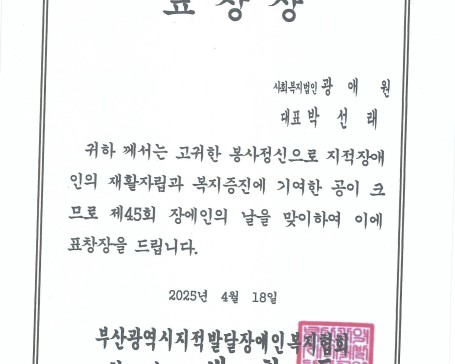 표 창 장
사회복지법인 광 애 원
대표 박 선 래
귀하 께서는 고귀한 봉사정신으로 지적장애
인의 재활자립과 복지증진에 기여한 공이 크
므로 제45회 장애인의 날을 맞이하여 이에
표창장을 드립니다.
2025년 4월 18일
부산광역시지적발달장애인복지협회